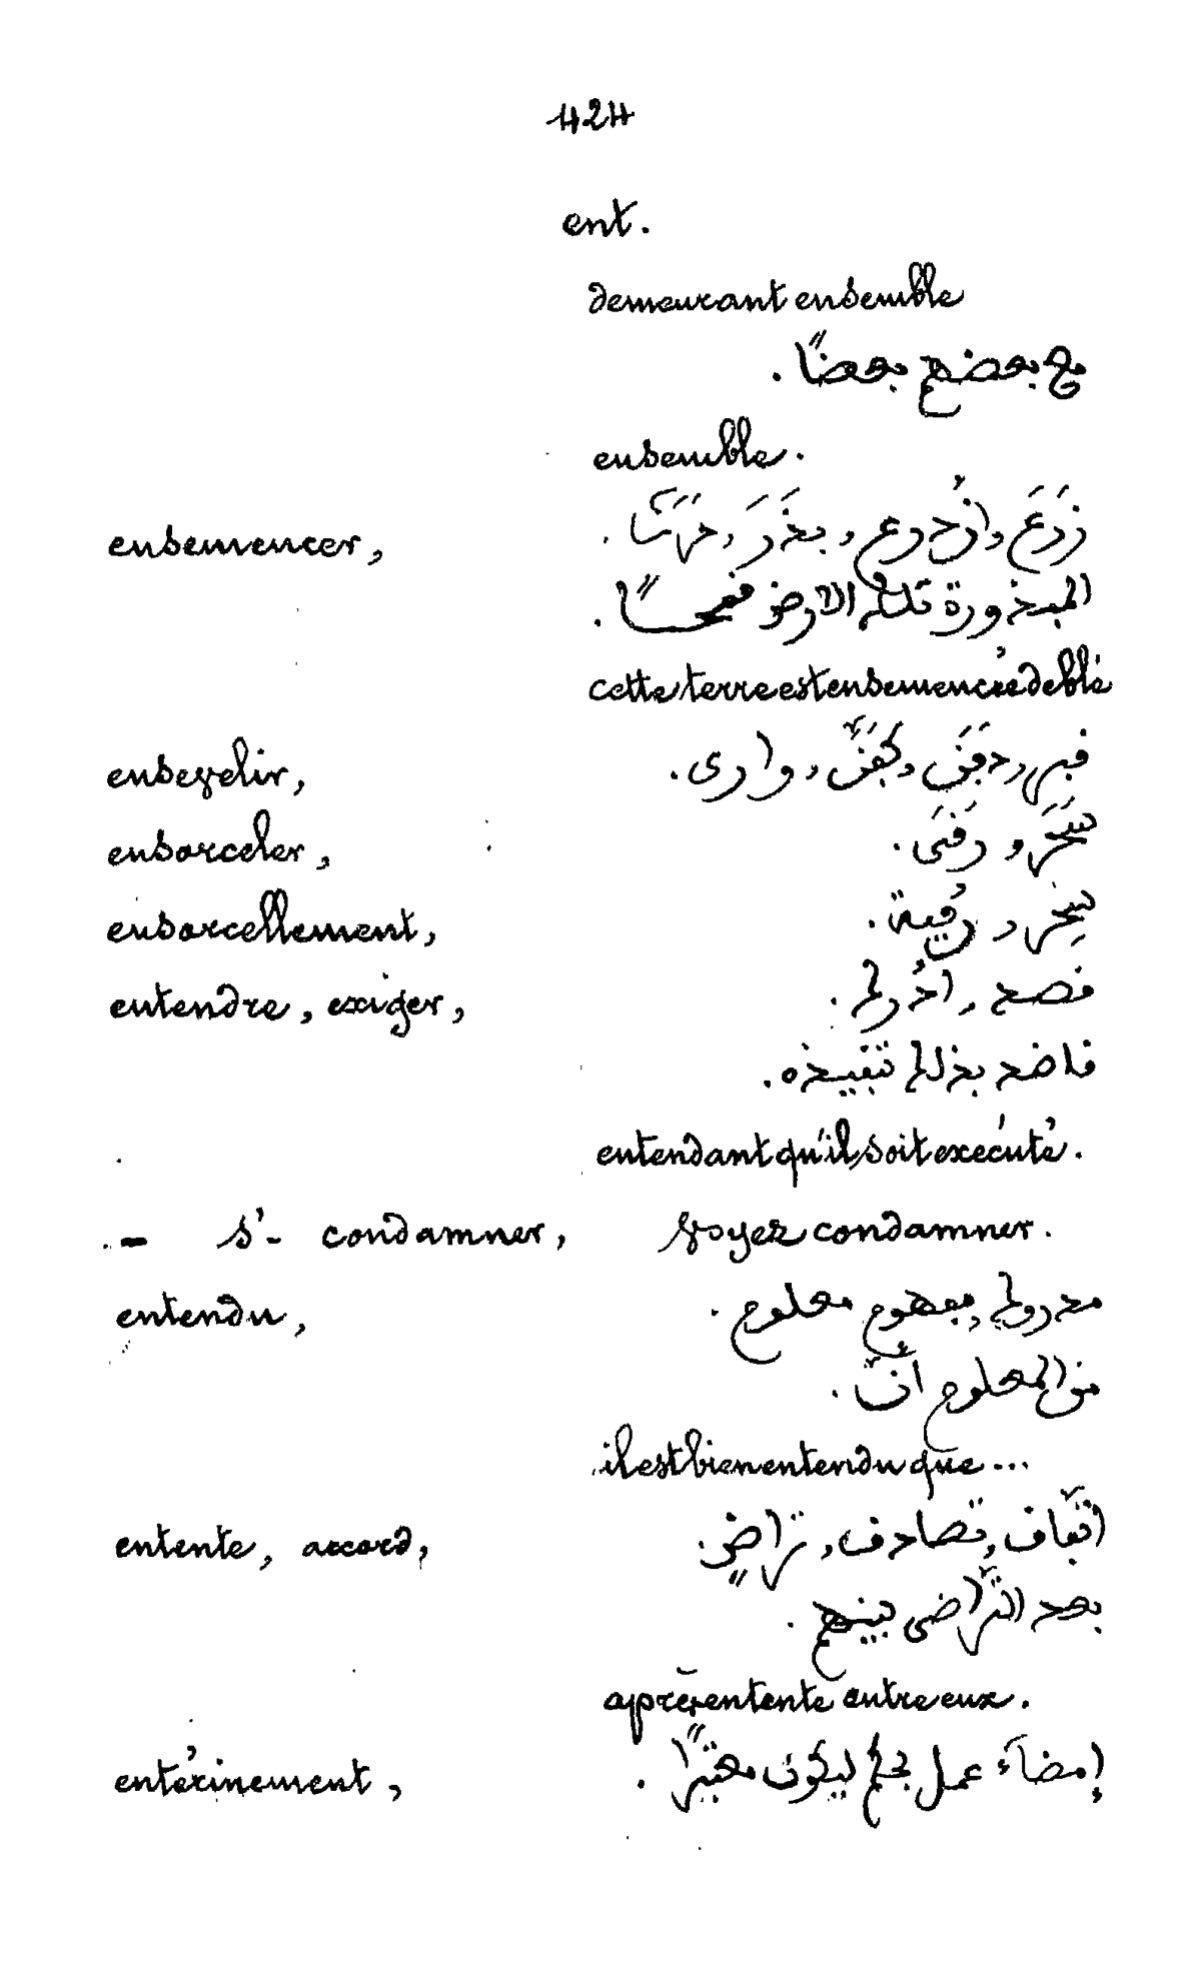 424
ent.
demeurant ensemble
مع بعضهم بعضًا.
ensemble.
ensemencer, زَرَعَ وازْدرع، بذَرَ، حَرَثَ.
المبذورة تلك الارض قمحًا.
cette terre est ensemencée de blé
ensevelir, قبر، دَفَنَ، كفَّنَ، وارى.
ensorceler, سَحَرَ و رَقَى.
ensorcellement, سِحْر و رُقية.
entendre, exiger, قصد,
قاصد بذلك تنفيذه.
entendant qu'il soit exécuté.
- s'- condamner, voyez condamner.
entendu, مدروك، مفهوم معلوم.
من المعلوم أنّ.
il est bien entendu que...
entente, accord, اتّفاق، تصادف، تراضٍ.
بعد التّراضى بينهم.
après entente entre eux.
entérinement, إمضآء عمل بحكم ليكون معتبرًا.